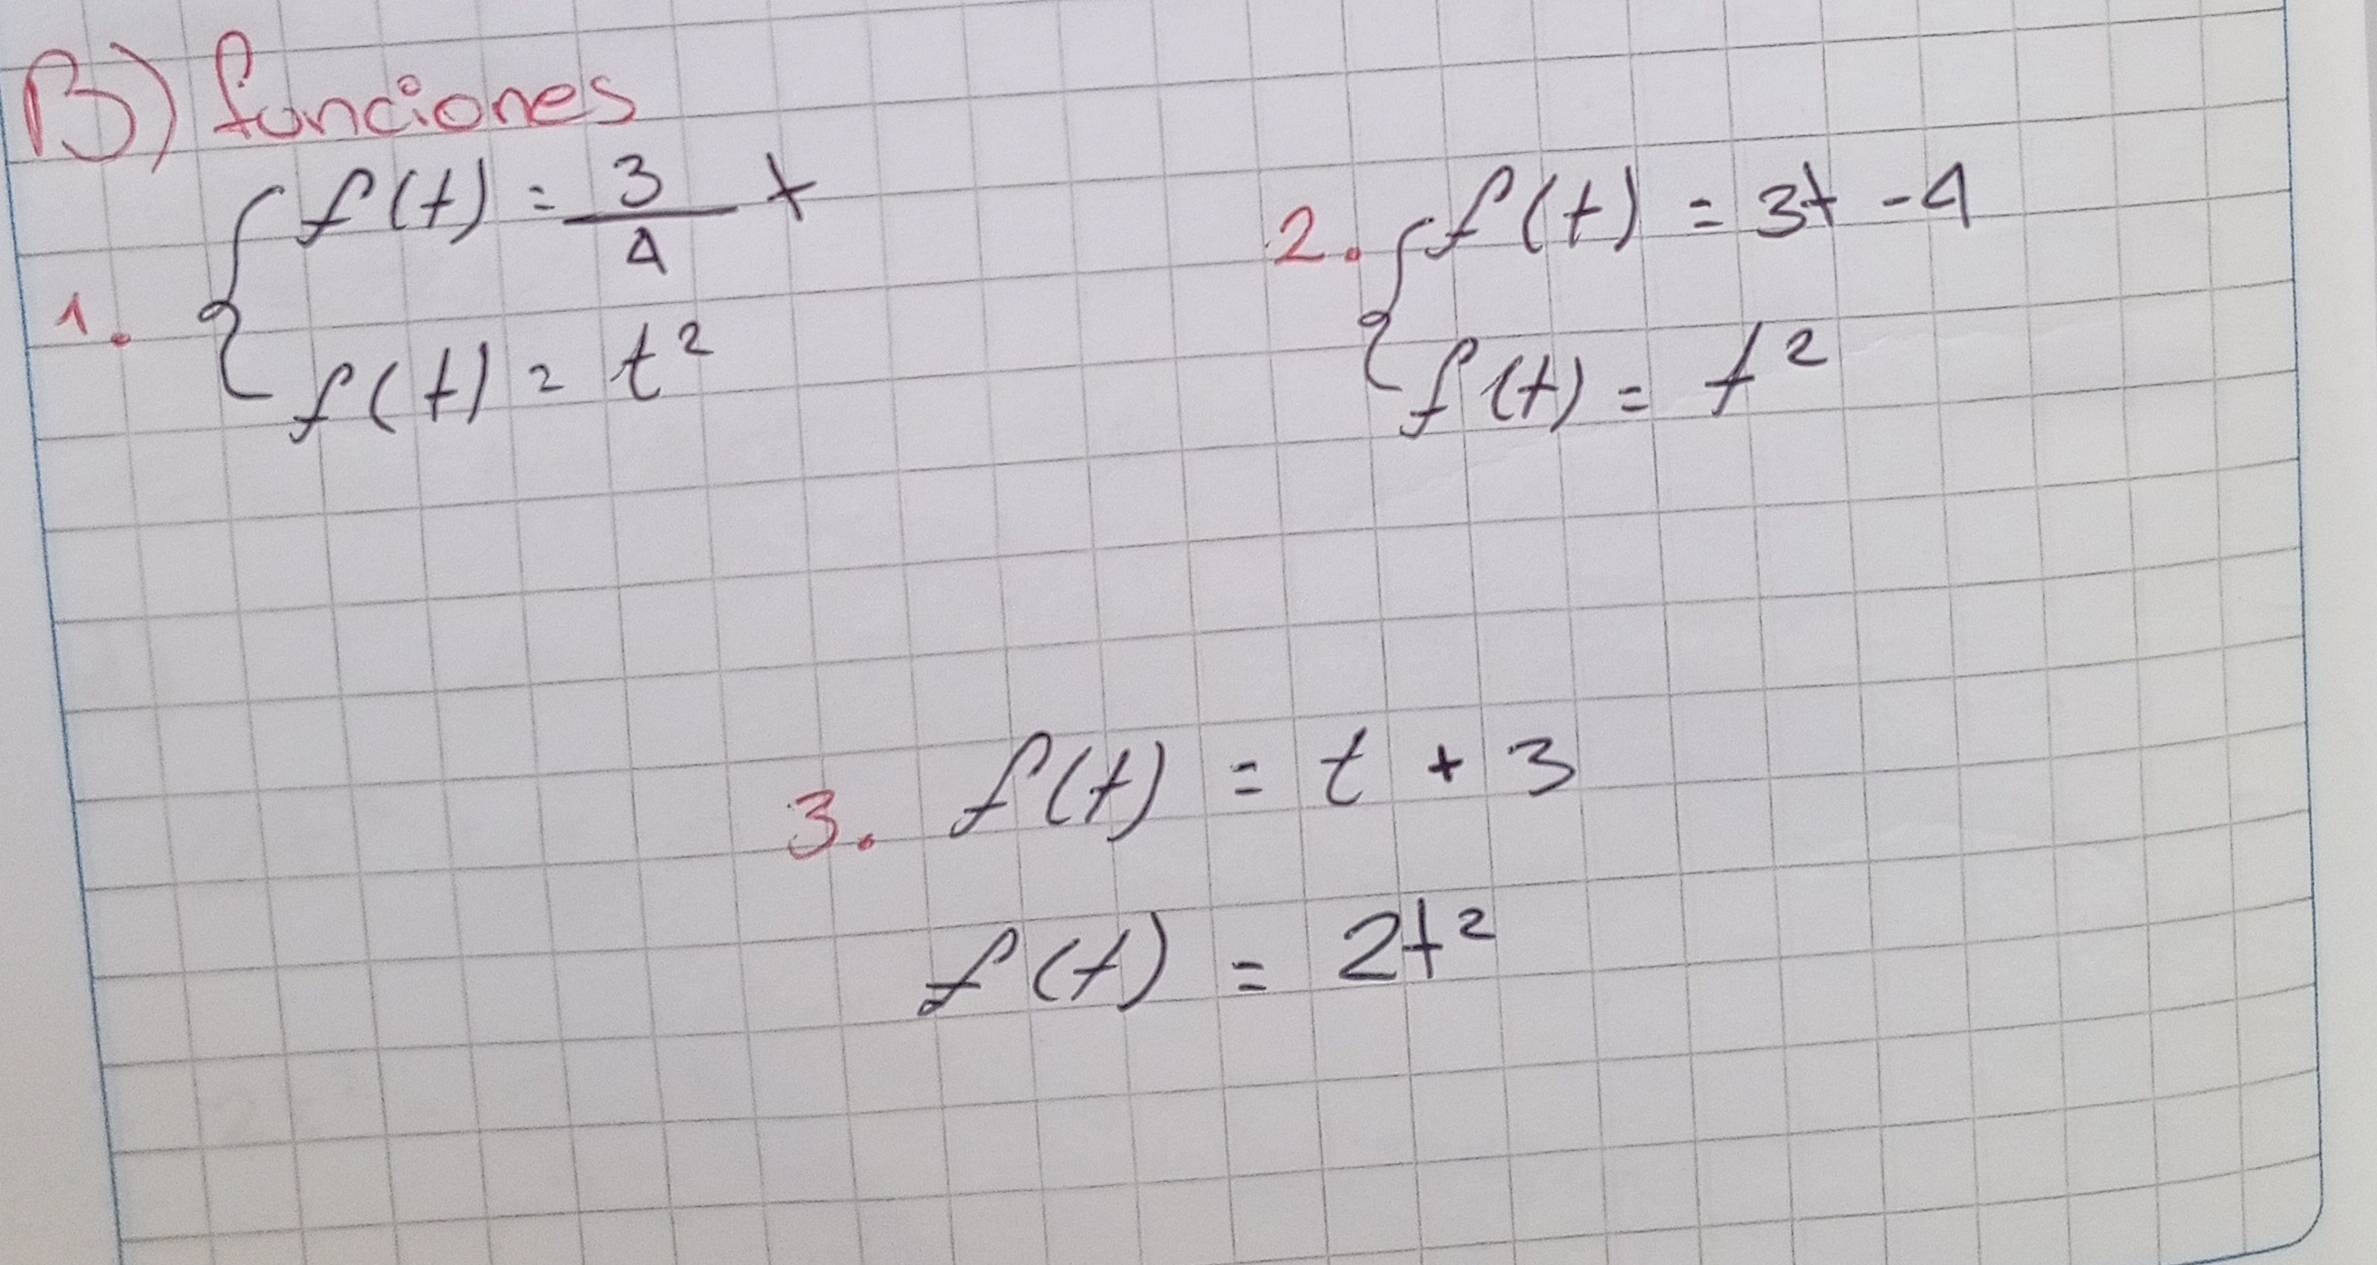 B) funciones
1. { f(t) = 3/4 t
f(t) = t²
2. { f(t) = 3t - 4
f(t) = t²
3. f(t) = t + 3
f(t) = 2t²